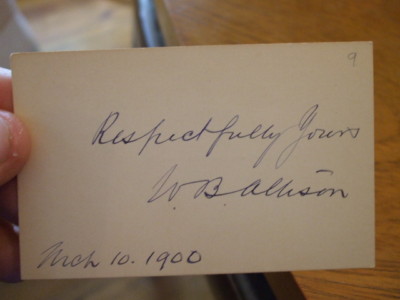 9
Respectfully Yours
W. B. Allison
Mch 10. 1900